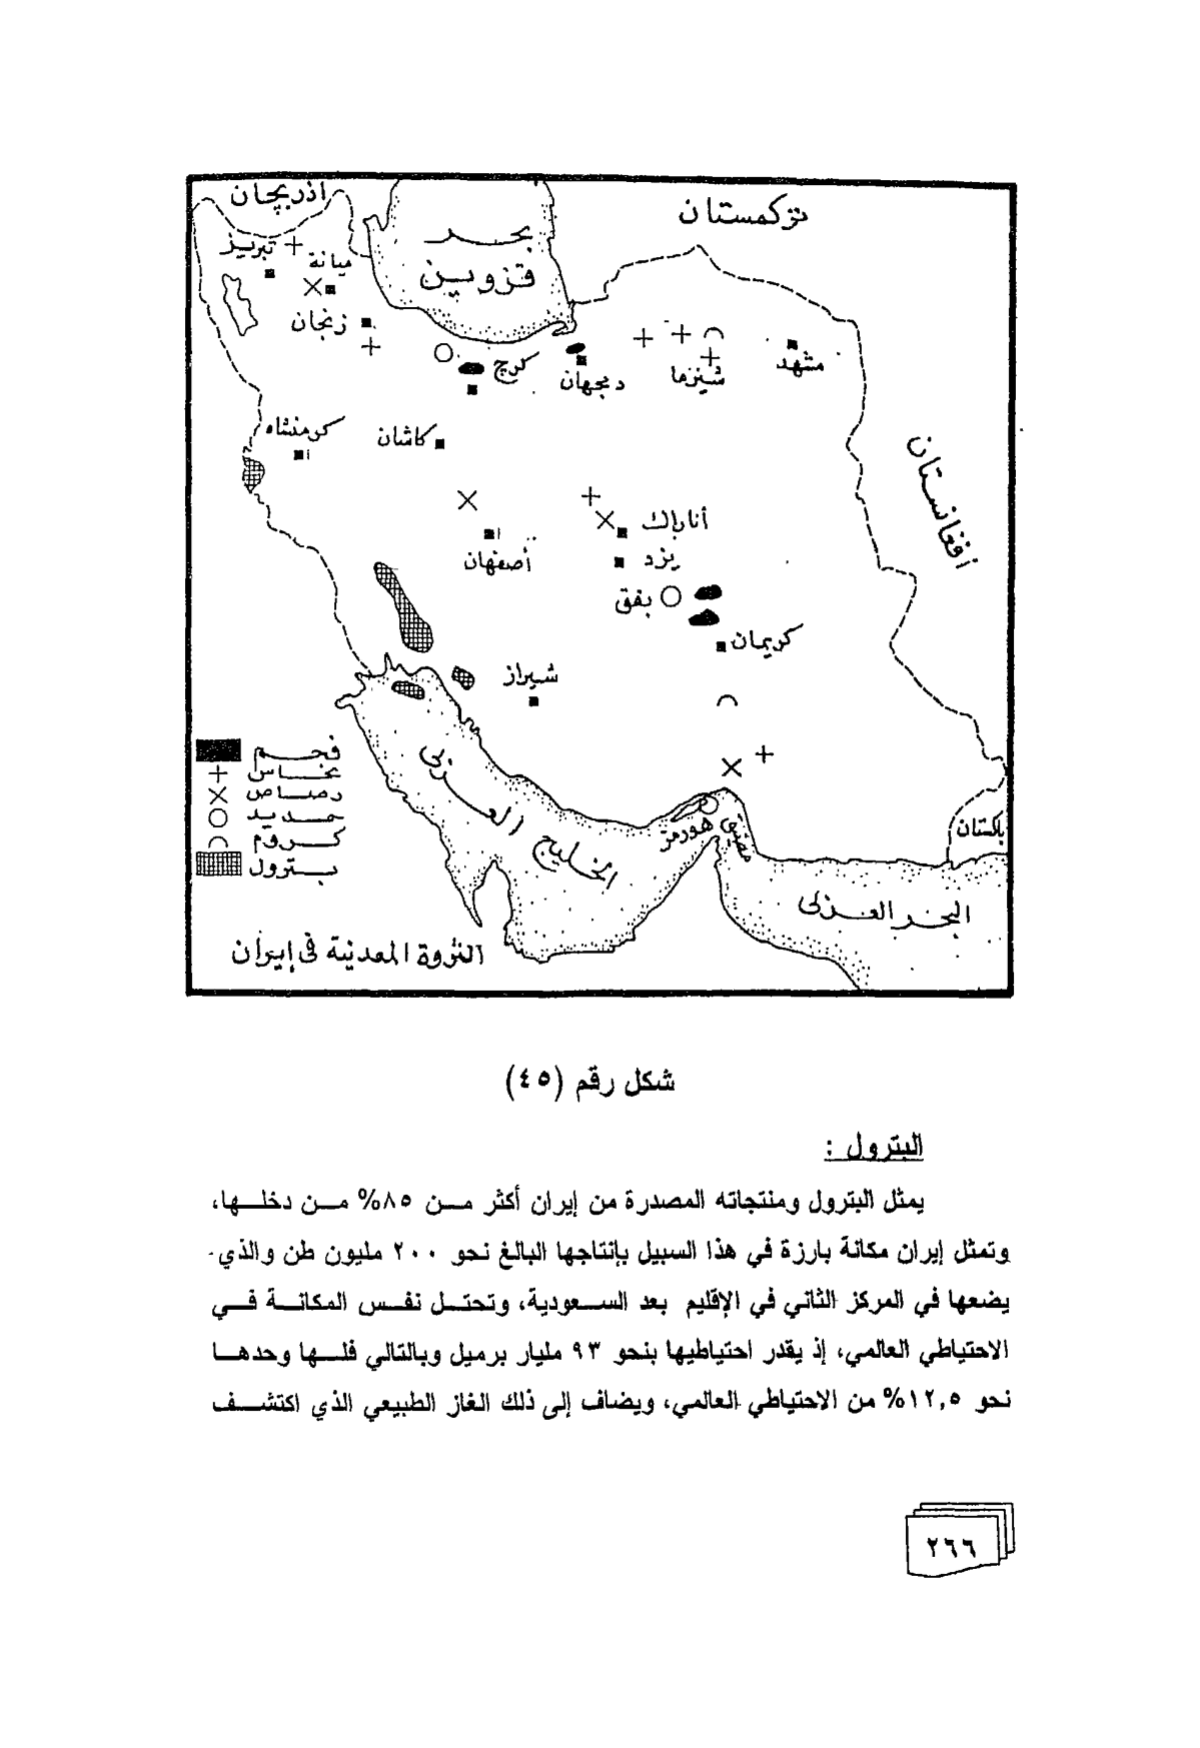 اذربيجان
تركمستان
بحر
قزوين
تبريز
ميانة
زنجان
كرج
ديجهان
شينزما
مشهد
كرمنشاه
كاشان
أفغانستان
أناراك
أصفهان
يزد
بفق
كريمان
شيراز
فحم
نحاس
رصاص
حديد
كروم
بترول
الخليج العربى
مضيق هورمز
باكستان
البحر العربى
الثروة المعدنية فى إيران
شكل رقم (٤٥)
البترول :
يمثل البترول ومنتجاته المصدرة من إيران أكثر من ٨٥% من دخلها،
وتمثل إيران مكانة بارزة في هذا السبيل بإنتاجها البالغ نحو ٢٠٠ مليون طن والذي
يضعها في المركز الثاني في الإقليم بعد السعودية، وتحتل نفس المكانة في
الاحتياطي العالمي، إذ يقدر احتياطيها بنحو ٩٣ مليار برميل وبالتالي فلها وحدها
نحو ١٢,٥% من الاحتياطي العالمي، ويضاف إلى ذلك الغاز الطبيعي الذي اكتشف
٢٦٦